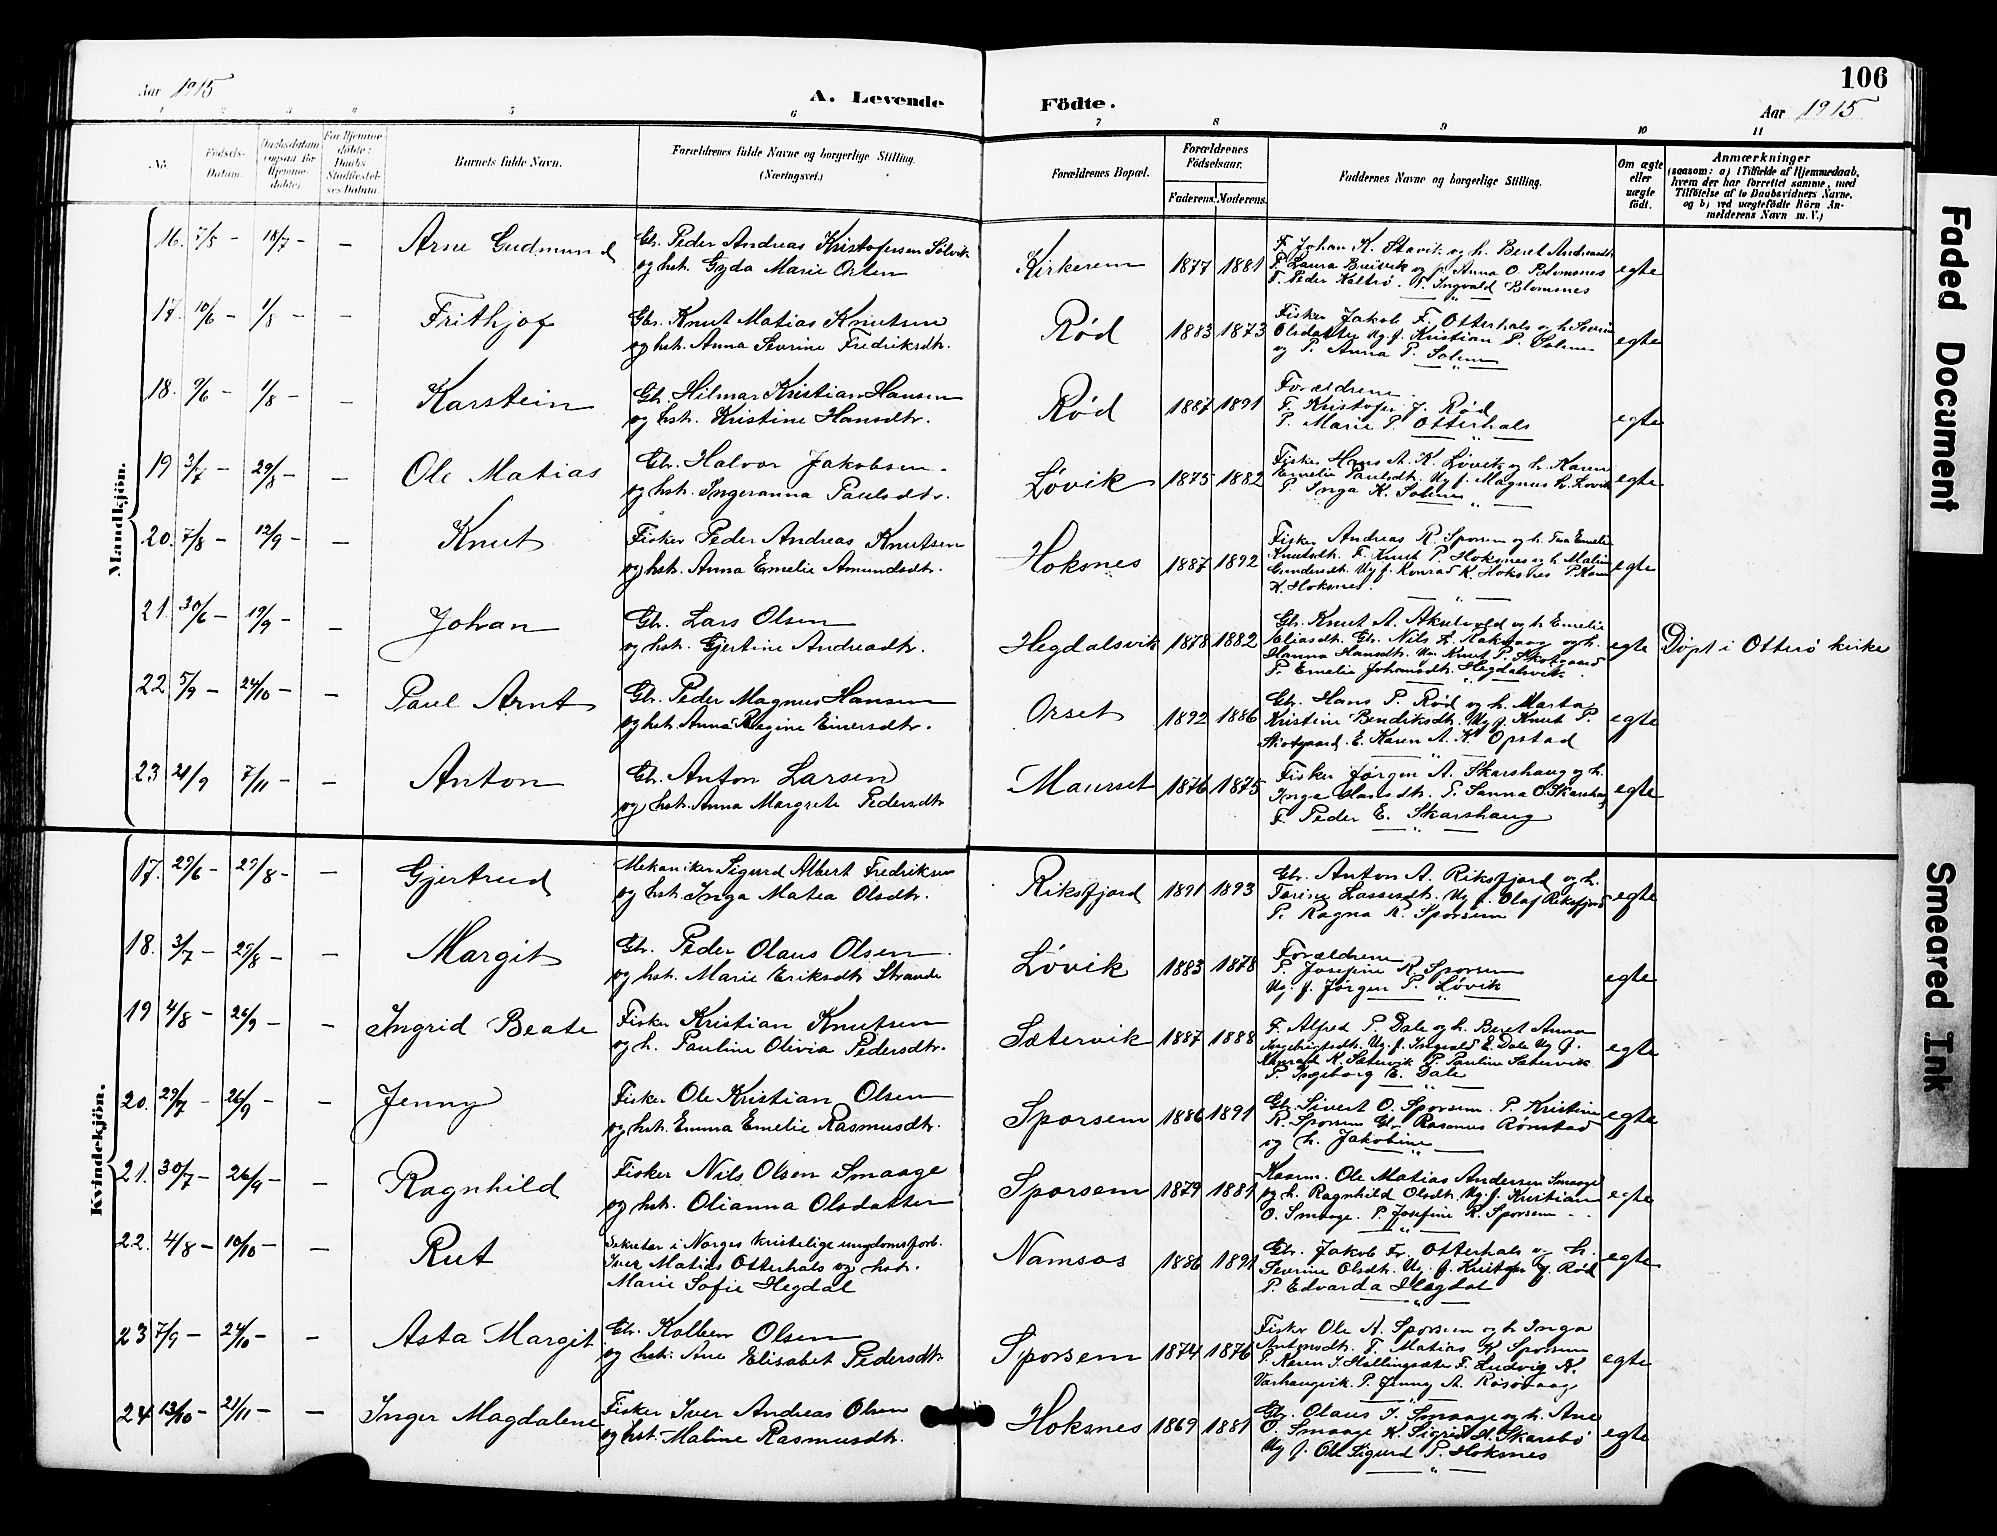 106
Aar 1915
A. Levende Födte.
Aar 1915
1 2 3 4 5 6 7 8 9 10 11
No. Födsels-Datum. Daabsdatum (ogsaa for Hjemme-döbte) For Hjemme-döbte: Daabs Stadfæstel-ses Datum. Barnets fulde Navn. Forældrenes fulde Navne og borgerlige Stilling. (Næringsvei.) Forældrenes Bopæl. Forældrenes Födselsaar. Faderens. Moderens. Faddernes Navne og borgerlige Stilling. Om ægte eller uægte födt. Anmærkninger (saasom: a) i Tilfælde af Hjemmedaab, hvem der har forrettet samme, med Tilföielse af to Daabsvidners Navne, og b) ved uægtefödte Börn An-melderens Navn m. V.)
Mandkjön.
16. 7/5 – 18/7 – – Arne Gudmund Gbr. Peder Andreas Kristofersen Solvik
og hstr. Gyda Marie Orten Kirkerem 1877 1881 F. Johan K. Stavik og h. Beret Andreasdt
P. Laura Breivik og p. Anna O. Blomsnes
F. Peder Kaltrø. U. Ingvald Blomsnes egte
17. 10/6 – 1/8 – – Frithjof Gbr. Knut Matias Knutsen
og hstr. Anna Severine Fredriksdtr. Rød 1883 1873 Fisker Jakob F. Otterhals og h. Severine
Olsdatter Ug. f. Kristian P. Solem
og P. Anna P. Solem egte
18. 9/6 – 1/8 – – Karstein Gbr. Hilmar Kristian Hansen
og hstr. Kristine Hansdtr. Rød 1887 1891 Forældrene.
F. Kristofer J. Rød
P. Marie P. Otterhals egte
19 3/7 – 29/8 – – Ole Matias Gbr. Halvor Jakobsen
og hstr. Ingeranna Paulsdtr. Løvik 1875 1882 Fisker Hans A. K. Løvik og h. Karen
Emelie Paulsdt. Ug f. Magnus H. Løvik
P. Inga K. Solem egte
20. 7/8 – 12/9 – – Knut Fisker Peder Andreas Knutsen
og hstr. Anna Emelie Amundsdtr. Hoksnes 1887 1892 Fisker Andreas R. Sporsem og h. Emelie
Knutsdt. F. Knut P. Hoksnes og h Malin
Gundersdt. Ug f. Konrad K. Hoksnes P. Karen
K. Hoksnes egte
21. 30/6 – 19/9 – – Johan Gbr. Lars Olsen
og hstr. Gjertine Andreasdtr. Hegdalsvik 1878 1882 Gbr. Knut A. Akselvold og h Emelie
Eliasdt. Gbr. Nils K. Rakvaag og h.
Hanna Hansdtr. Um Knut P. Skotgaard
P. Emelie Johansdtr. Hegdalsvik egte Døpt i Otterø kirke
22 5/9 – 24/10 – – Paul Arnt Gbr. Peder Magnus Hansen
og hstr. Anna Regine Einersdtr. Orset 1892 1886 Gbr. Hans P. Rød og h. Marta
Kristine Bendiksdt. Ug f. Knut P.
Skotgaard. E. Karen A. K. Opstad egte
23 21/9 7/11 – – Anton Gbr. Anton Larsen
og hstr. Anna Margrete Pedersdtr Maurset 1876 1875 Fisker Jørgen A. Skarshaug og h.
Inga Hansdtr. P. Sanna O. Skarshaug
F. Peder E. Skarshaug egte
Kvindekjön.
17. 27/6 – 29/8 – – Gjertrud Mekaniker Sigurd Albert Fredriksen
og hstr. Inga Matea Olsdtr. Riksfjord 1891 1893 Gbr. Anton A. Riksfjord og h.
Terine Lassesdt. Ug f. Olaf Riksfjord
P. Ragna R. Sporsem egte
18. 3/7 – 29/8 – – Margit Gbr. Peder Olaus Olsen
og hstr. Marie Eriksdtr Strande Løvik 1883 1878 Forældrene
P. Josefine R. Sporsem
Ug. f. Jørgen P. Løvik egte
19 4/8 – 26/9 – – Ingrid Beate Fisker Kristian Knutsen
og h. Pauline Olivia Pedersdtr. Sætervik 1887 1888 F. Alfred P. Dale og h. Beret Anna
Ingebrigtsdt. Ug. f. Ingvald E. Dale Ug f.
Konrad K. Sætervik P. Pauline Sætervik
P. Ingeborg E. Dale egte
20. 29/7 – 26/9 – – Jenny Fisker Ole Kristian Olsen
og hstr. Emma Emelie Rasmusdtr. Sporsem 1886 1891 Gbr. Sivert O. Sporsem. P. Kristine
R. Sporsem Gbr Rasmus Rønstad
og h. Jakobine egte
21. 30/7 – 26/9 – – Ragnhild Fisker Nils Olsen Smaage
og hstr. Olianna Olsdatter Sporsem 1879 1881 Kaarm. Ole Matias Andersen Smaage
og h. Ragnhild Olsdt. Ug. f. Kristian
O. Smaage. P. Josefine R. Sporsem egte
22. 4/8 – 10/10 – – Rut Sekretær i Norges kristelige ungdomsforb.
Iver Matias Otterhals og hstr.
Marie Sofie Hegdal Namsos 1886 1891 Gbr. Jakob Fr. Otterhals og h.
Severine Olsdt. Ug. f. Kristofer J. Rød
P. Edvarda Hegdal egte
23 7/9 – 24/10 – – Asta Margit Gbr. Kolbein Olsen
og hstr. Ane Elisabet Pedersdtr Sporsem 1874 1876 Fisker Ole A. Sporsem og h Inga
Antonsdt. F. Matias K. Sporsem
P. Karen J. Hallingsæter F. Ludvig K.
Varhaugvik. P. Jenny A. Røsøhaug egte
24 13/10 – 21/11 – – Inger Magdalene Fisker Iver Andreas Olsen
og hstr. Maline Rasmusdtr. Hoksnes 1869 1881 Gbr. Olaus J. Smaage og h. Ane
O. Smaage K. Sigrid H. Skarsbø
Ug f. Ole Sigurd P. Hoksnes egte
Faded Document
Smeared Ink